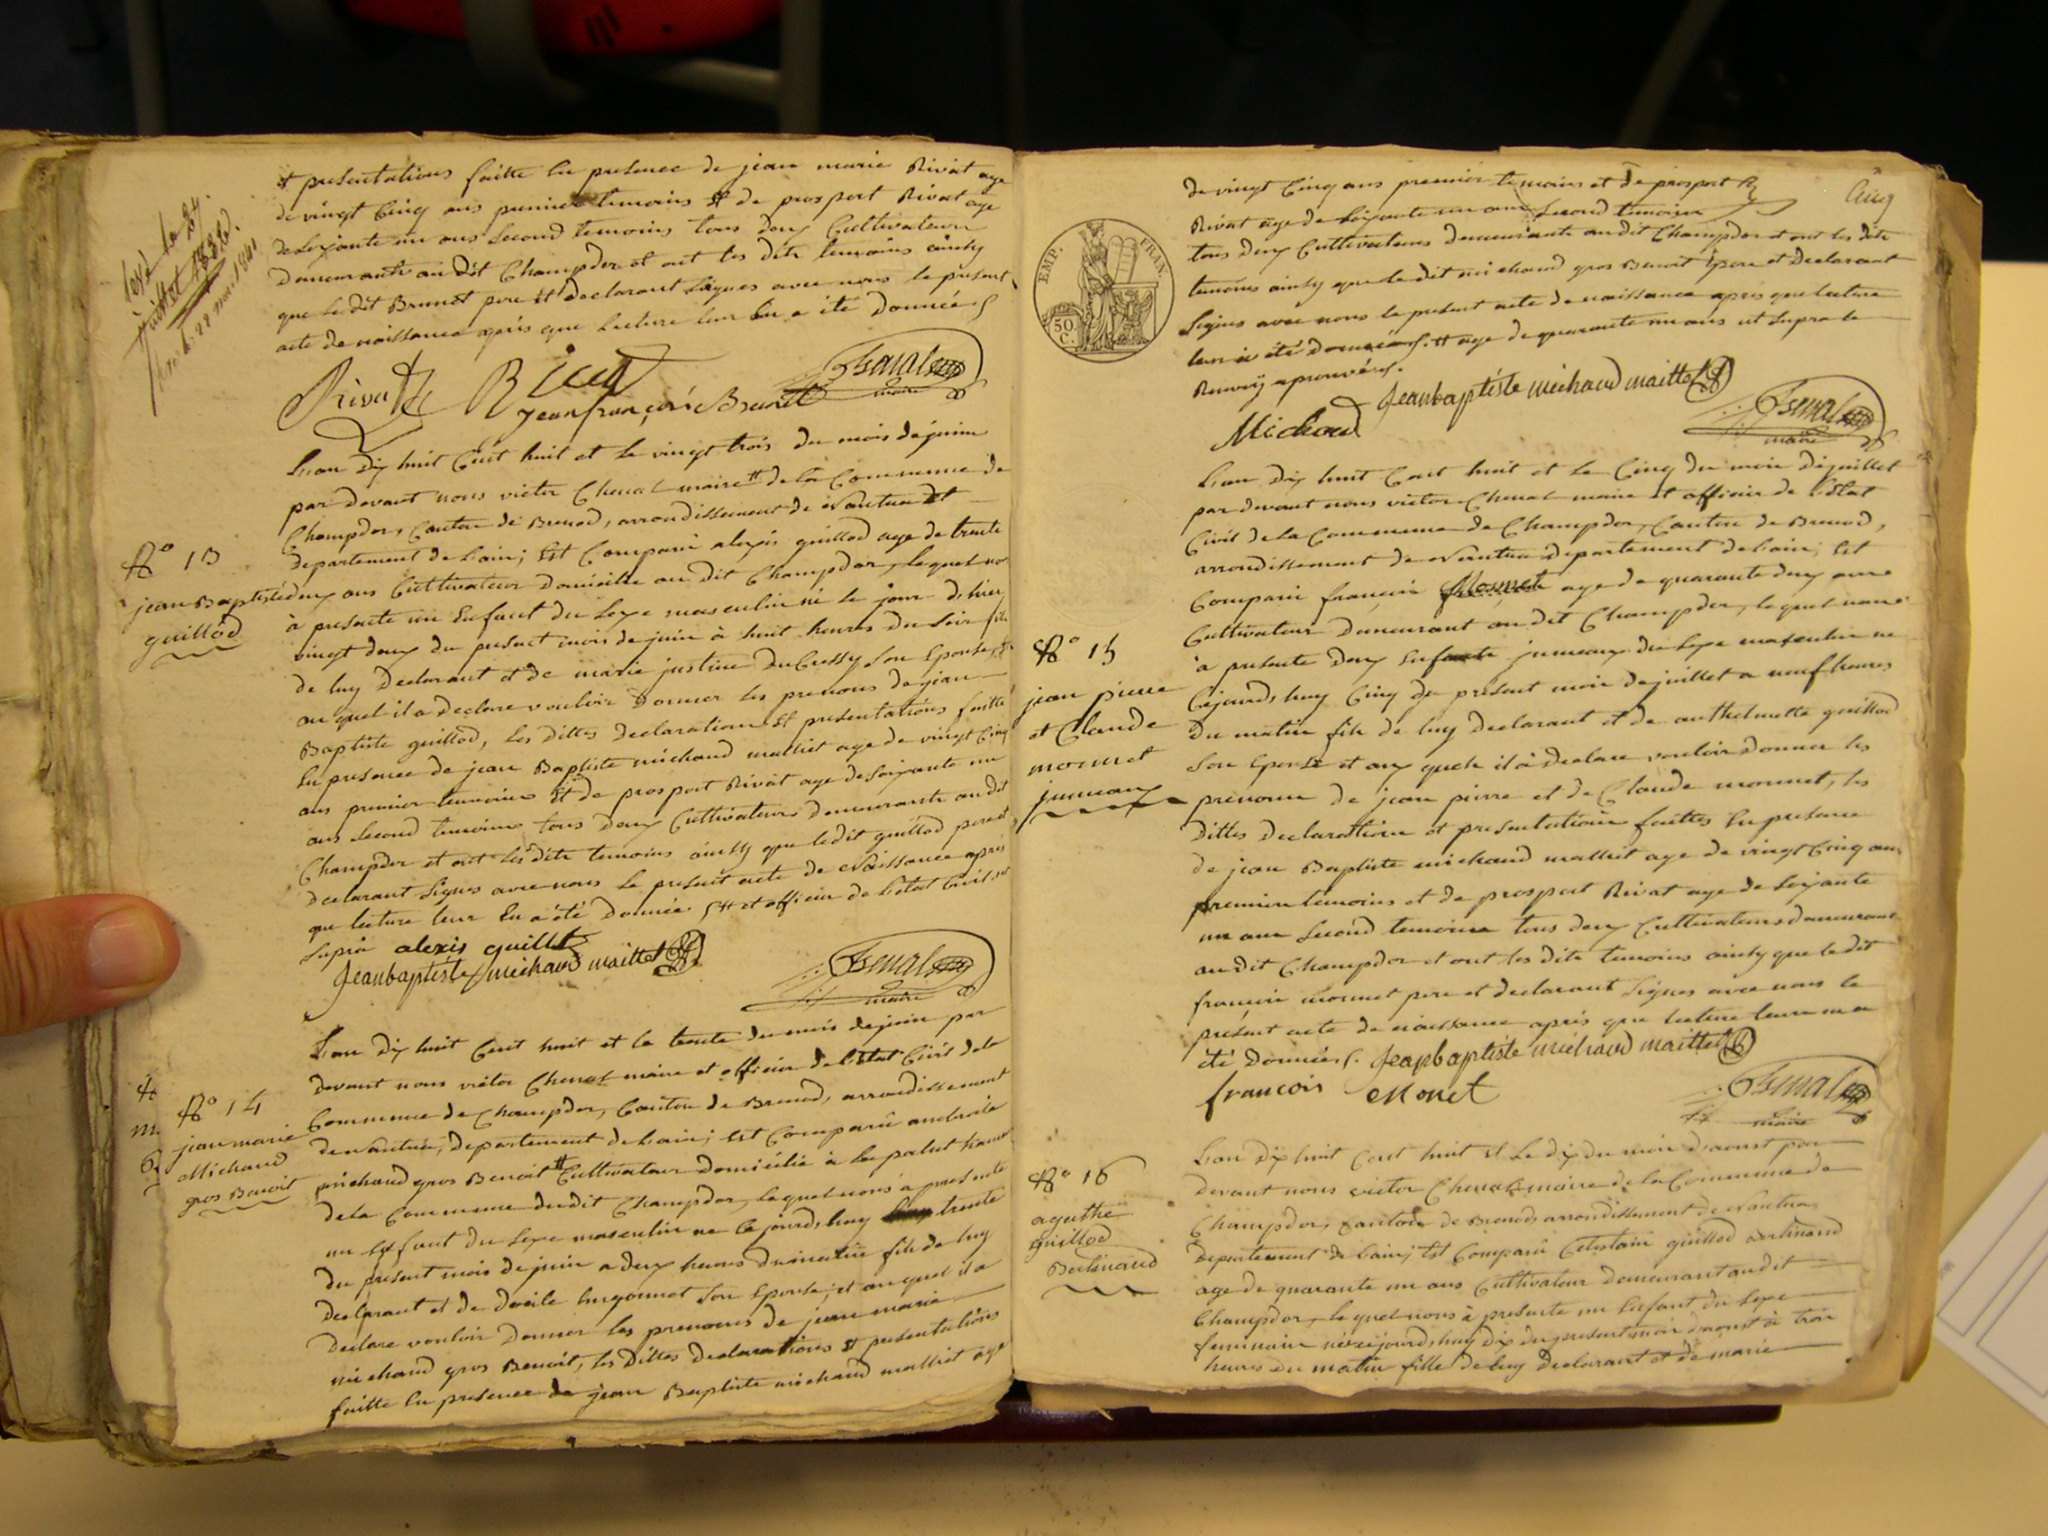 levé le 24
juillet 1838.
et presentations faitte En presence de jean marie Rivat age
de vingt Cinq ans premier temoins et de prosport Rivat age
de Soixante un ans Second temoins tous deux Cultivateurs
demeurants au dit Champdor et ont les dits temoins ainsy
que le dit Brunet pere et declarant Signes avec nous le present
acte de naissance après que Lecture leur En a ité donnée
Rivat
jean françois Brunet
maire
N° 13
jean Baptiste
guillod
L'an dix huit Cent huit et le vingt trois du mois de juin
par devant nous victor Chenal maire # de la Commune de
Champdor, Canton de Brenod, arrondissement de Nantua et
departement de L'ain; Est Comparu alexis guillod age de trente
deux ans Cultivateur domicilie au dit Champdor, lequel nous
à presenté un Enfant du Sexe masculin né le jour d'hier
vingt deux du present mois de juin à huit heures du Soir fils
de luy declarant et de marie justine ducressy Son Epouse, et
au quel il a declare vouloir donner les prenoms de jean
Baptiste guillod, les dittes declaration et presentations faitte
En presence de jean Baptiste michaud malliet age de vingt Cinq
ans premier temoins et de prosport Rivat age de Soixante un
ans Second temoins tous deux Cultivateurs demeurants au dit
Champdor et ont les dits temoins ainsy que ledit guillod pere et
declarant Signes avec nous le present acte de Naissance après
que lecture leur En a été donnée # et officier de l'état Civil ut
Supra alexis guillot
Jeanbaptiste michaud maittet
maire
N° 14
jean marie
Michaud
gros Benoit
L'an dix huit Cent huit et le trente du mois de juin par
devant nous victor Chenal maire et officier de l'Etat Civil de la
Commune de Champdor, Canton de Brenod, arrondissement
de Nantua, departement de L'ain; Est Comparu
michaud gros Benoit # Cultivateur domicilié à la palut
de la Commune du dit Champdor, lequel nous à presenté
un Enfant du Sexe masculin ne ce jourd'huy trente
du present mois de juin a deux heures du matin fils de luy
declarant et de Son Epouse, et au quel il a
declare vouloir donner les prenoms de jean marie
michaud gros Benoit, les dittes declarations et presentations
faitte En presence de jean Baptiste michaud malliet age
Cinq
EMP. FRAN.
50 C.
de vingt Cinq ans premier temoins et de prosport
Rivat age de Soixante un ans Second temoins
tous deux Cultivateurs demeurants au dit Champdor et ont les dits
temoins ainsy que le dit michaud gros Benoit pere et declarant
Signes avec nous le present acte de naissance après que lecture
leur à été donnée. # age de quarante un ans ut Supra le
Renvoy aprouvé.
Jeanbaptiste michaud maittet
Michaud
maire
L'an dix huit Cent huit et le Cinq du mois de juillet
par devant nous victor Chenal maire et officier de l'Etat
Civil de la Commune de Champdor, Canton de Brenod,
arrondissement de Nantua departement de L'ain; Est
Comparu françois Monnet age de quarante deux ans
Cultivateur demeurant au dit Champdor, lequel nous
N° 15
jean pierre
et Claude
monnet
jumeaux
a presenté deux Enfants jumeaux du Sexe masculin ne
Cejourd'huy Cinq du présent mois de juillet a neuf heures
du matin fils de luy declarant et de anthelmette guillod
Son Epouse et aux quels il à declare vouloir donner les
prenoms de jean pierre et de Claude monnet, les
dittes declaration et presentation faittes En presence
de jean Baptiste michaud malliet age de vingt Cinq ans
premier temoins et de prosport Rivat age de Soixante
un ans Second temoins tous deux Cultivateurs demeurant
au dit Champdor et ont les dits temoins ainsy que le dit
françois monnet pere et declarant Signes avec nous le
présent acte de naissance après que lecture leur en a
été donnée. Jeanbaptiste michaud maittet
francois Monet
maire
N° 16
agathe
guillod
Berlinand
L'an dix huit Cent huit et Le dix du mois d'aoust par
devant nous victor Chenal maire de la Commune de
Champdor, Canton de Brenod, arrondissement de Nantua
departement de L'ain; Est Comparu guillod Berlinand
age de quarante un ans Cultivateur demeurant au dit
Champdor, lequel nous à presenté un Enfant du Sexe
feminin née cejourd'huy dix du present mois d'aoust à trois
heures du matin fille de luy declarant et de marie